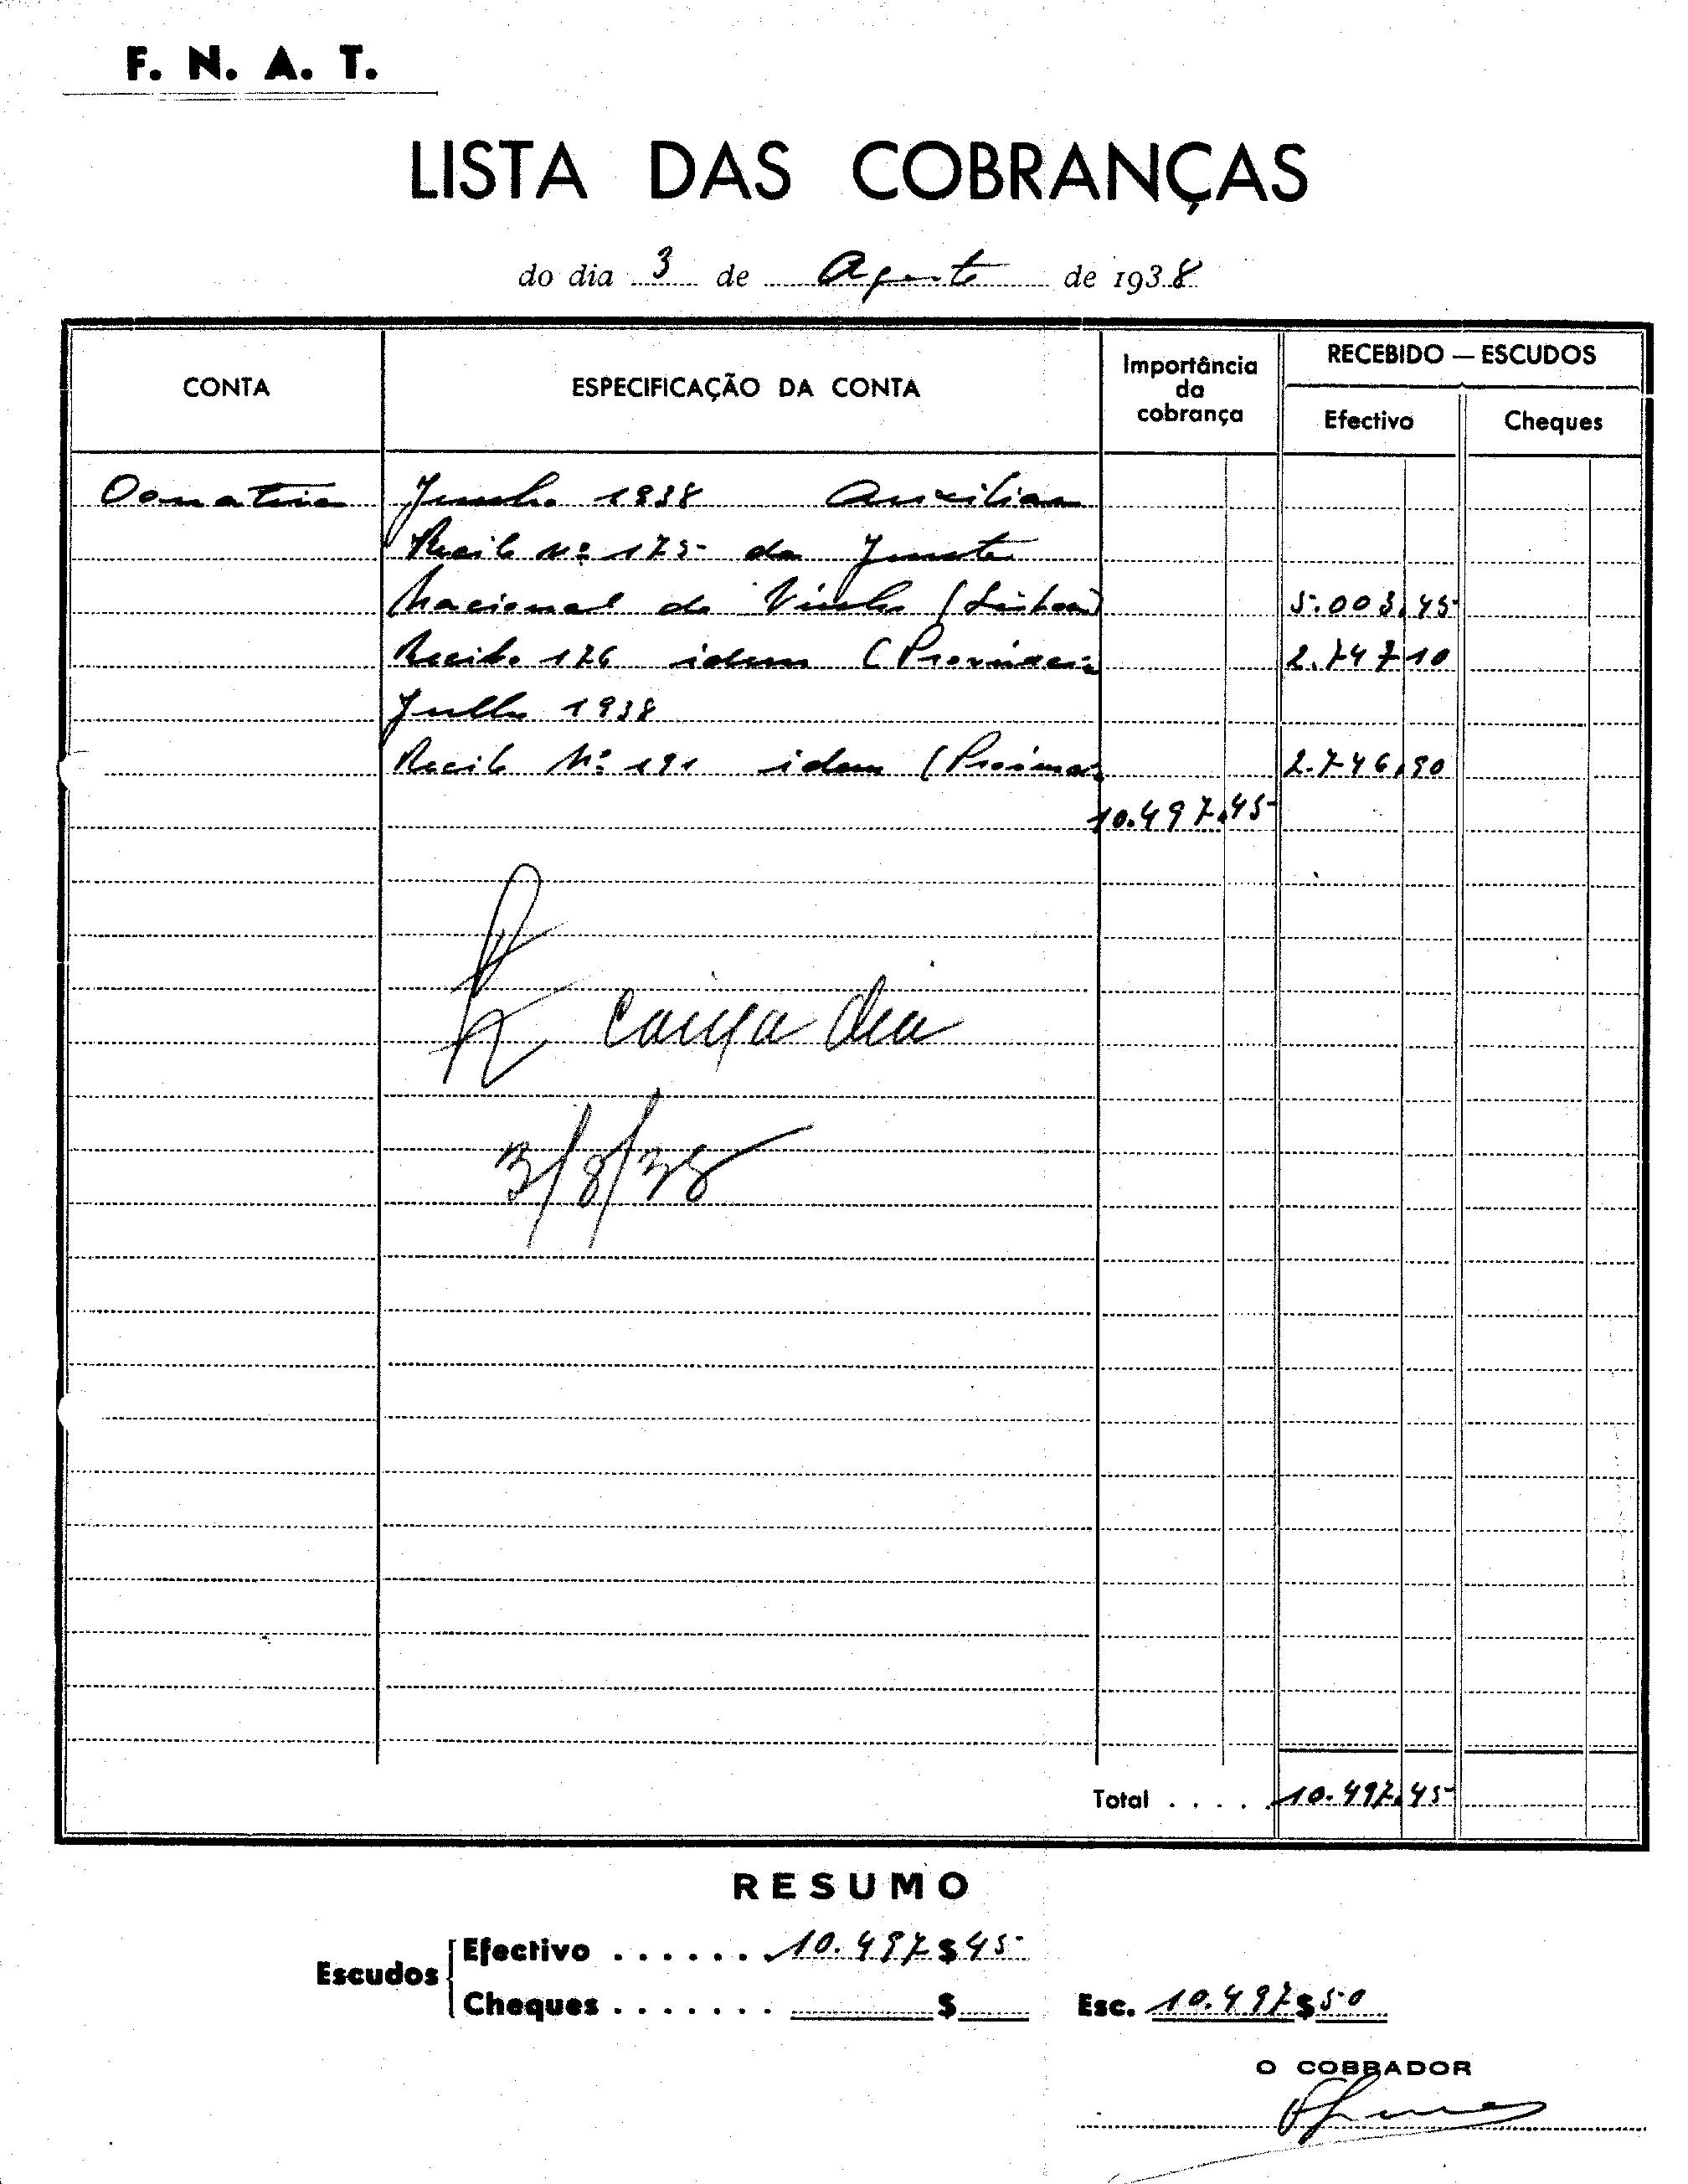 F. N. A. T.
LISTA DAS COBRANÇAS
do dia 3 de Agosto de 1938
CONTA ESPECIFICAÇÃO DA CONTA Importância da cobrança RECEBIDO — ESCUDOS
Efectivo Cheques
Donativo Junho 1938 Auxiliar
Recibo Nº 175 da Junta
Nacional do Vinho (Lisboa) 5.003,45
Recibo 176 idem (Provincia 2.747,10
Julho 1938
Recibo Nº 191 idem (Provincia 2.746,90
10.497,45
caixa dia
3/8/38
Total . . . . . 10.497,45
RESUMO
Escudos
Efectivo . . . . . . . 10.497$45
Cheques . . . . . . . $ Esc. 10.497$50
O COBRADOR